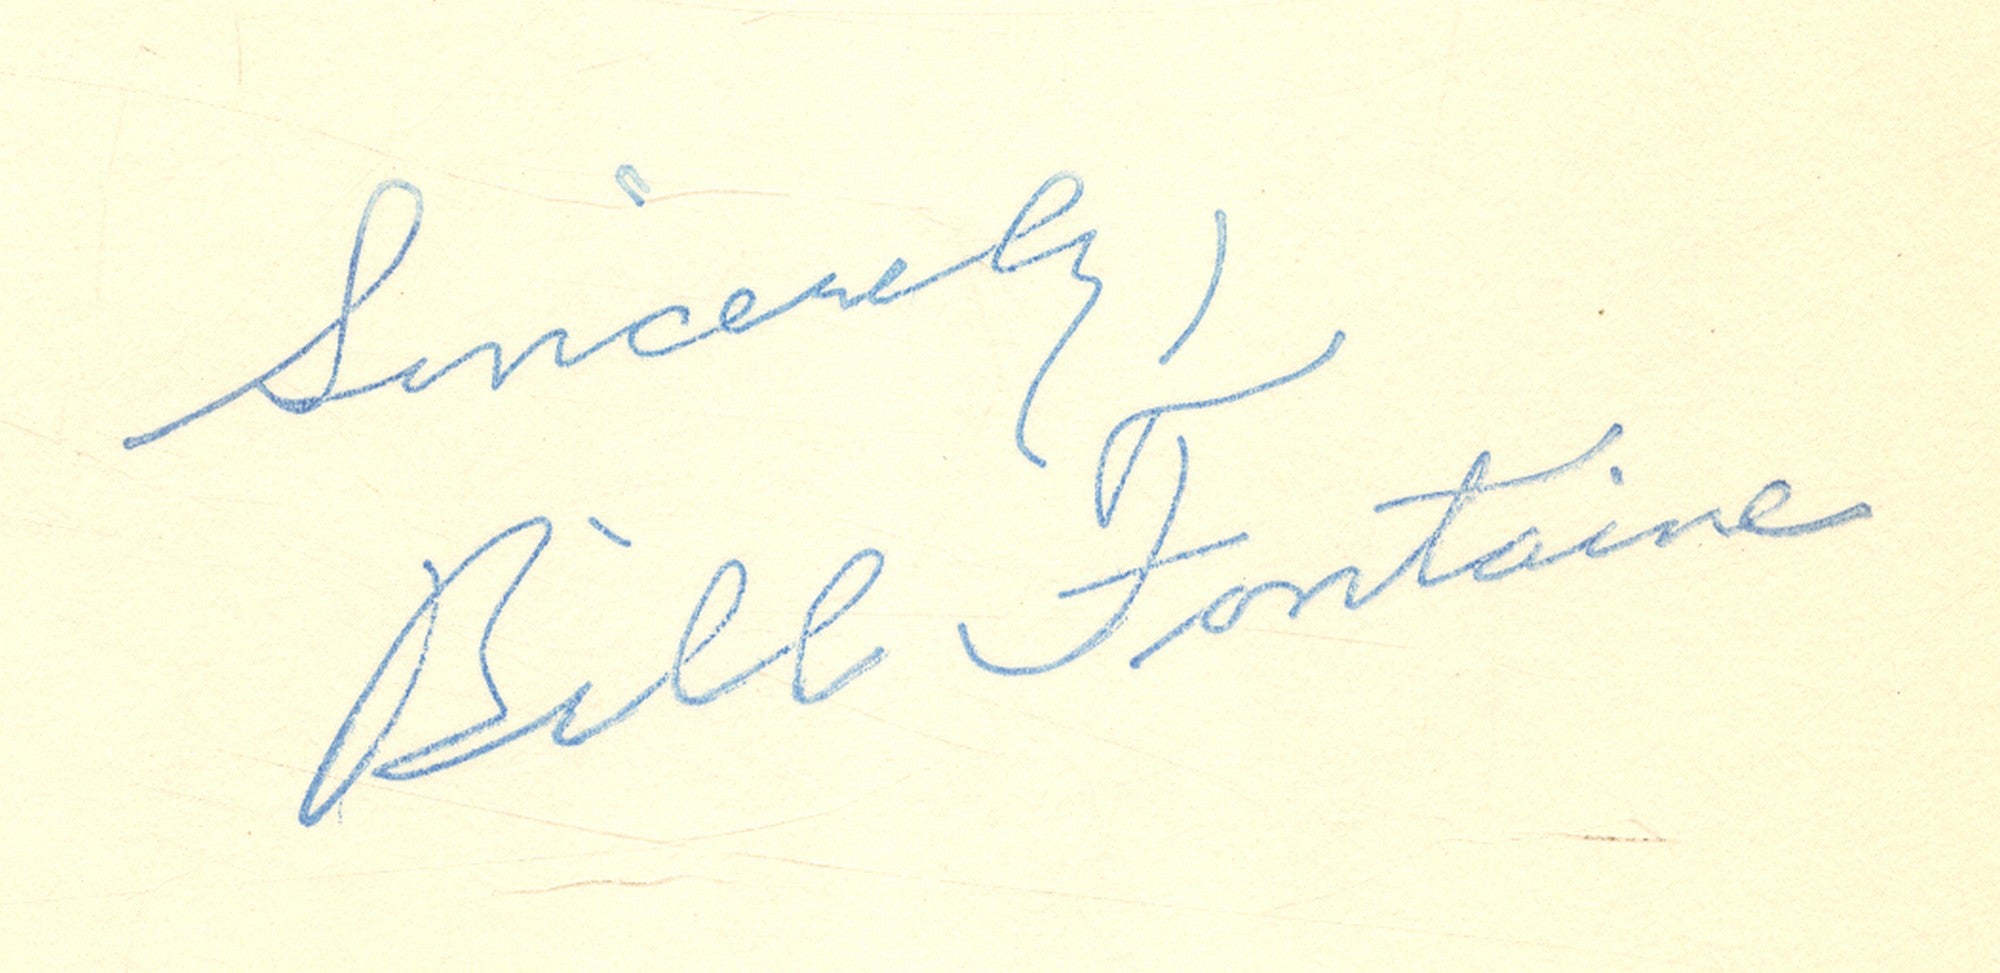 Sincerely,
Bill Fontaine